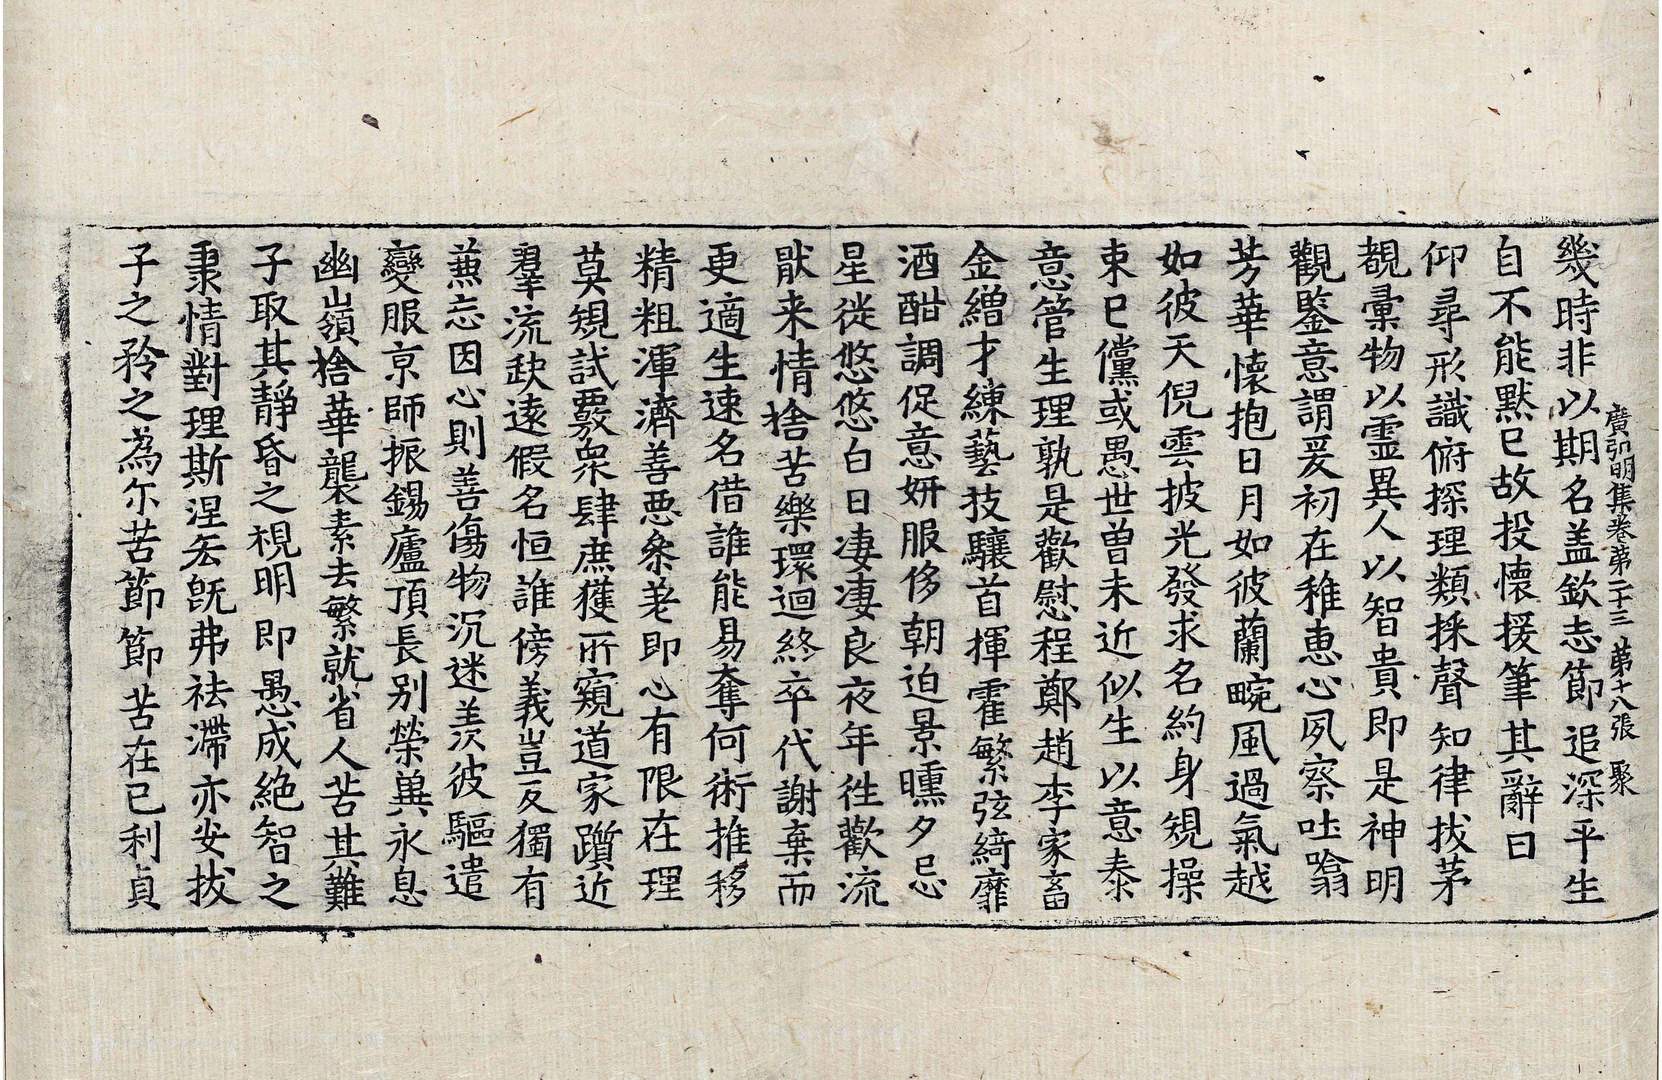 廣弘明集卷第二十三 第十八張 聚
幾時非以期名盖欽志節追深平生
自不能黙巳故投懷援筆其辭曰
仰尋形識俯探理類採聲知律拔茅
覩彙物以霊異人以智貴即是神明
觀鑒意謂爰初在稚惠心夙察吐翕
芳華懷抱日月如彼蘭畹風過氣越
如彼天倪雲披光發求名約身䂓操
束巳儻或愚世曽未近似生以意泰
意管生理孰是歡慰程鄭趙李家畜
金繒才練藝技驤首揮霍繁弦綺靡
酒酣調促意妍服侈朝迫景曛夕忌
星從悠悠白日凄凄良夜年往歡流
猒来情捨苦樂環迴終卒代謝棄而
更適生速名借誰能易奪何術推移
精粗渾濟善悪叅差即心有限在理
莫䂓試覈衆肆庶獲所窺道家躓近
羣流䟽遠假名恒誰傍義豈反獨有
兼忘因心則善傷物沉迷羡彼驅遣
變服京師振錫廬頂長别榮兾永息
幽嶺捨華襲素去繁就省人苦其難
子取其靜昏之視明即愚成絶智之
秉情對理斯涅宏旣弗祛滯亦安拔
子之矜之為尓苦節節苦在已利貞